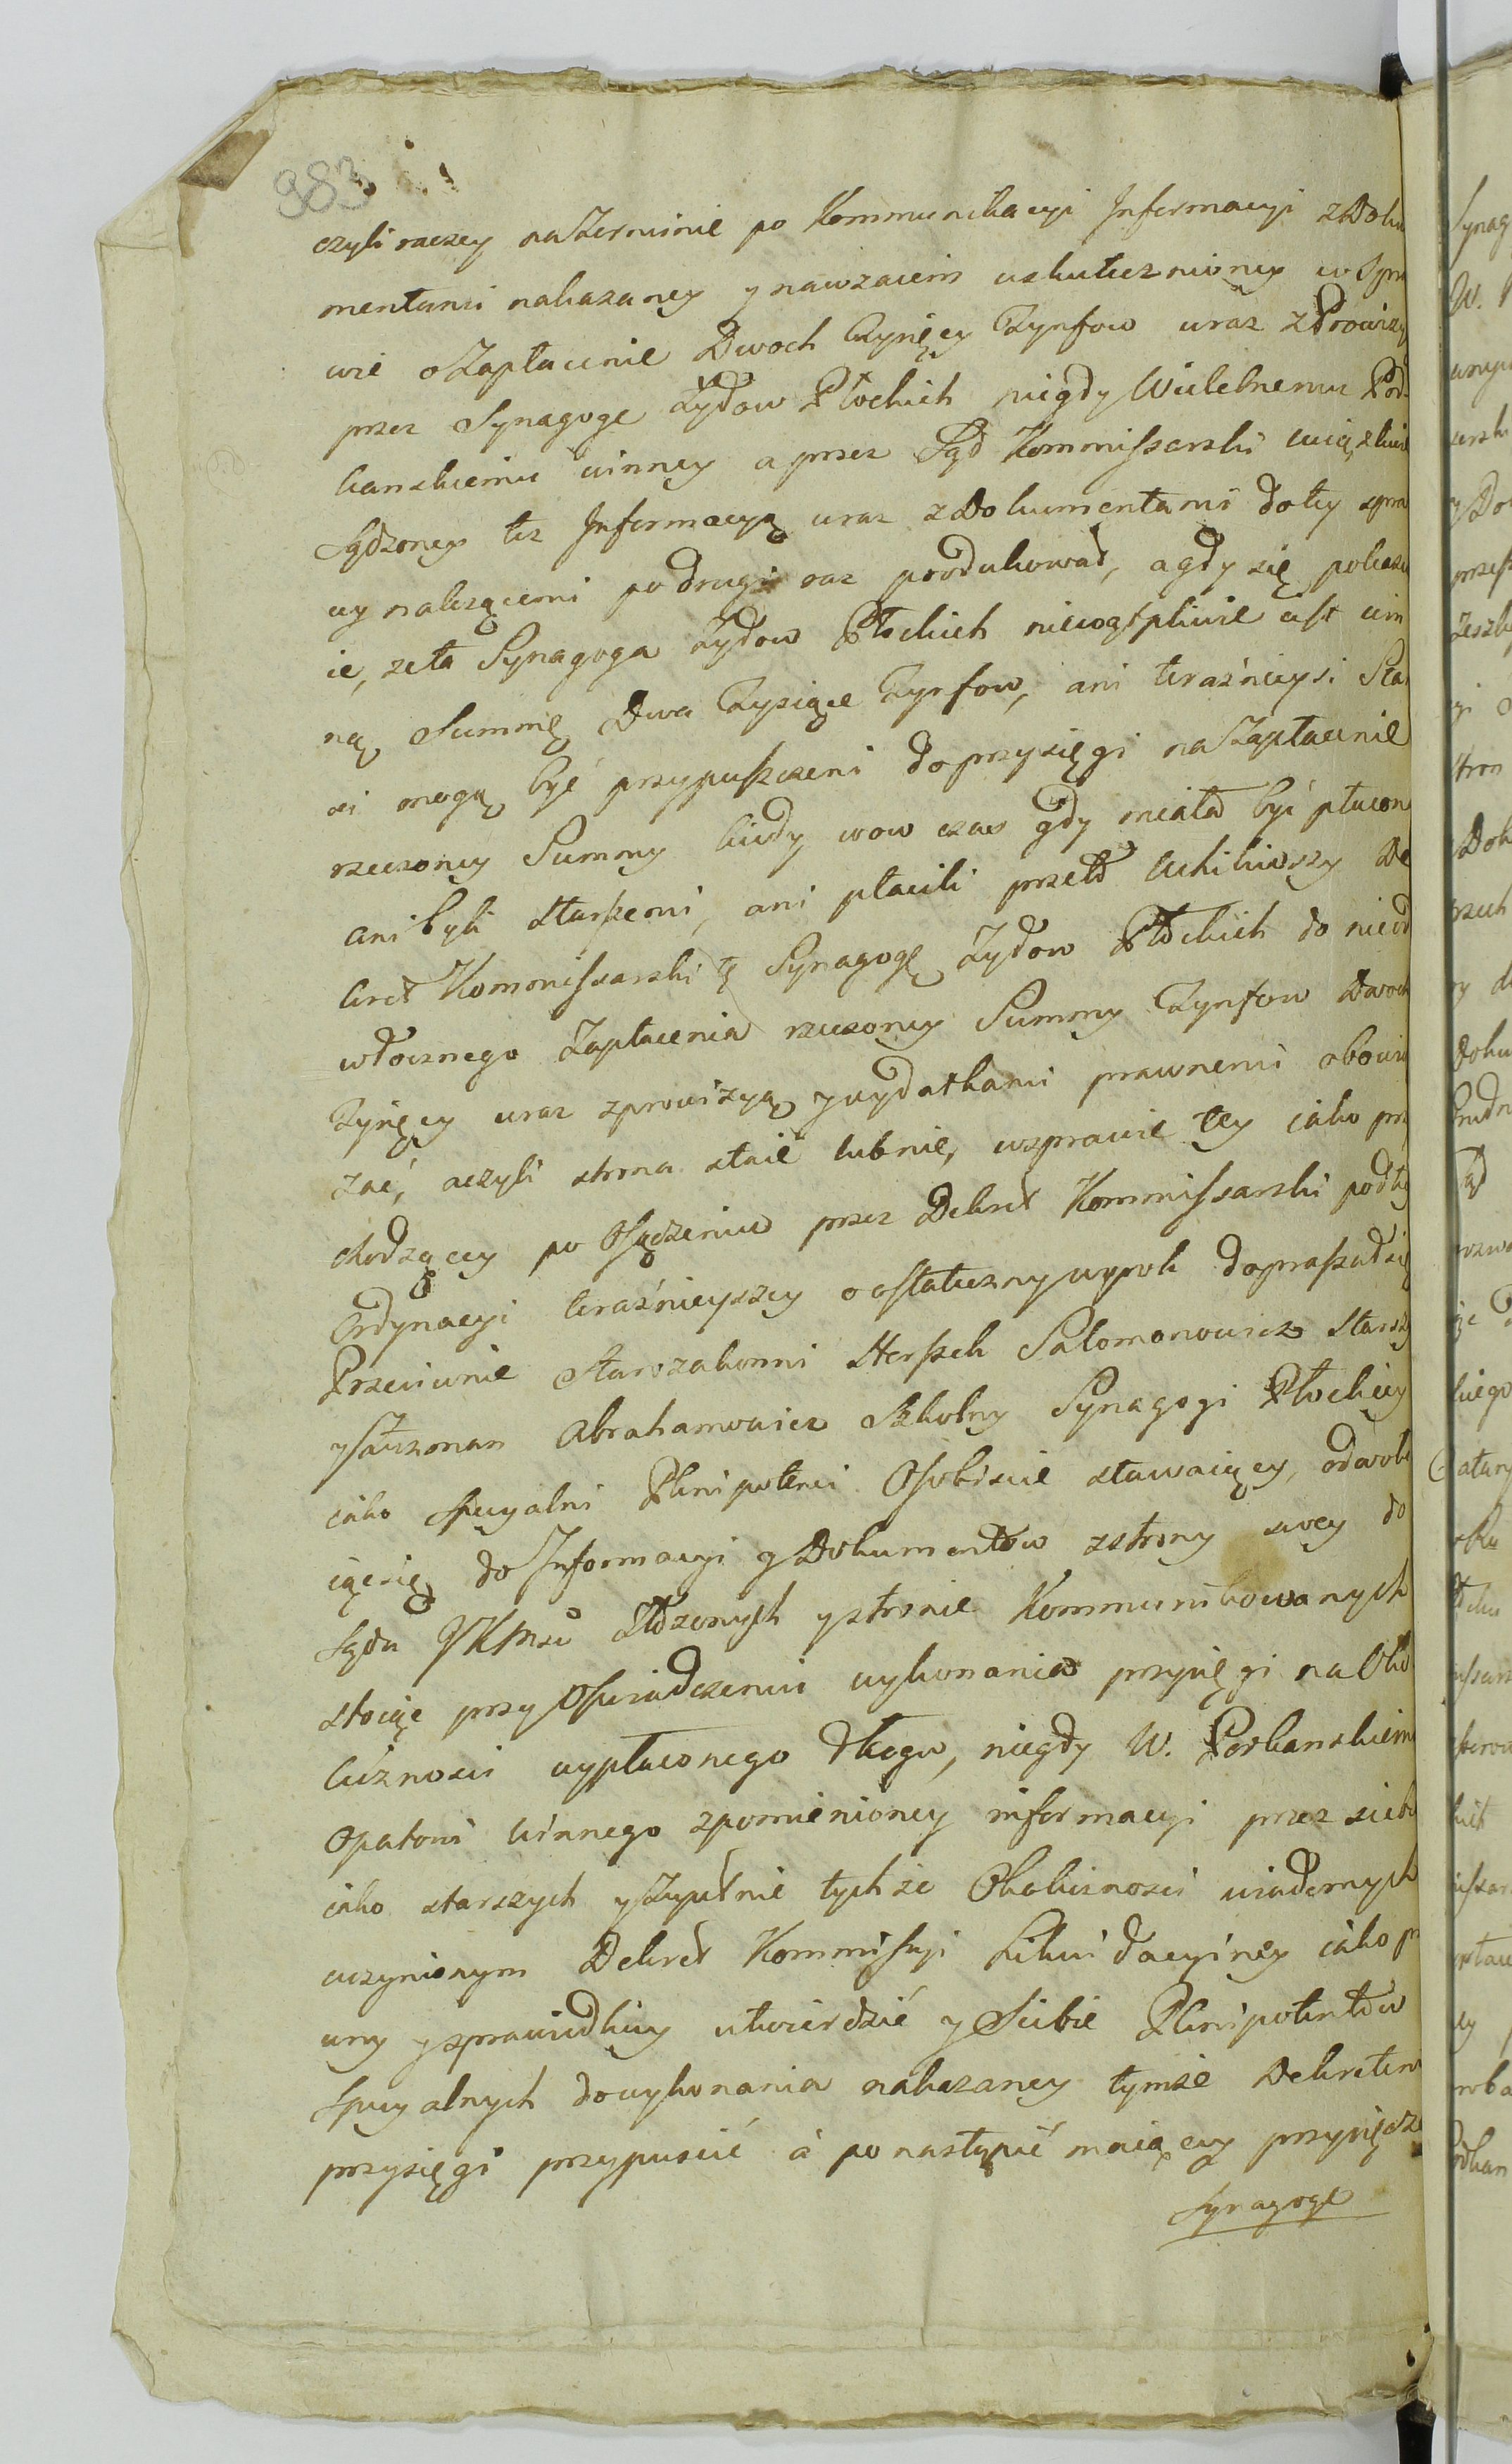 983
czyli raczey na Terminie po Kommunikacyi Informacyi z Doku
mentami nakazaney y nawzaiem uskutecznioney w Spra
wie o Zapłacenie Dwoch Tysięcy Tynfow wraz z Prowizyą
przez Synagogę Żydow Płockich niegdy Wielebnemu Por
banskiemu winney a przez Sąd Kommissarski
Sądzoney też Informacyą wraz z Dokumentami do tey spra
wy należącemi po drugi raz produkował, a gdy się pokazu
ie, że ta Synagoga Żydow Płockich niewątpliwie iest win
ną Summę Dwa Tysiące Tynfow, ani teraźnieysi Star
si mogą być przypuszczeni do przysięgi na Zapłacenie
rzeczoney Summy kiedy wow czas gdy miała być płacon
ani byli starszemi, ani płacili przeto uchiliwszy De
kret Kommissarski tę Synagogę Żydow Płockich do nieod
włocznego Zapłacenia rzeczoney Summy Tynfow Dwoch
Tysięcy wraz z prowizyą y wydatkami prawnemi obowią
zać, a czyli strona staie lub nie, w sprawie tey iako prz
chodzącey po Osądzeniu przez Dekret Kommissarski podług
Ordynacyi teraźnieyszey o ostateczny wyrok dopraszał się
Przeciwnie Starozakonni Herszek Salomonowicz Starszy
y Załzman Abrahamowicz Szkolny Synagogi Płockiey
iako specyalni Plenipotenci Osobiscie stawaiący, odwołu
iąc się do Informacyi y Dokumentow z strony swey do
Sądu JKMsci złożonych y stronie Kommunikowanych
stoiąc przy Oswiadczeniu wykonania przysięgi na Oko
licznosci wypłaconego długu, niegdy W. Porbanskiemu
Opatowi winnego z pomienioney informacyi przez siebie
iako starszych y Zupełnie tychże Okolicznosci wiadomych
uczynionym Dekret Kommissyi Likwidacyiney iako pr
wny y sprawiedliwy utwierdzić y Siebie Plenipotentow
specyalnych do wykonania nakazaney tymże Dekretem
przysięgi przypuscić a po nastąpić maiącey przysiędze
Synagogę